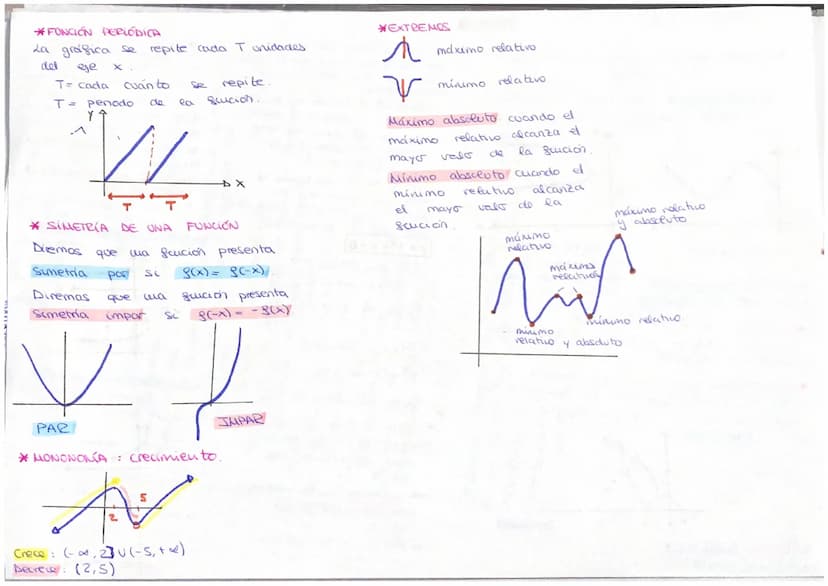 *FUNCIÓN PERIÓDICA
La gráfica se repite cada T unidades
del eje x.
T= cada cuánto se repite.
T= periodo de la función.
Y
X
T T
* SIMETRÍA DE UNA FUNCIÓN
Diremos que una función presenta
Simetría par si f(x)= f(-x)
Diremos que una función presenta
Simetría impar si f(-x) = -f(x)
PAR
IMPAR
* MONONOMÍA : crecimiento.
2
5
Crece : (-∞, 2] ∪ (-5, +∞)
Decrece : (2,5)
*EXTREMOS
máximo relativo
mínimo relativo
Máximo absoluto cuando el
máximo relativo alcanza el
mayor valor de la función.
Mínimo absoluto cuando el
mínimo relativo alcanza
el mayor valor de la
función.
máximo relativo
y absoluto
máximo
relativo
máximos
relativos
mínimo relativo
mínimo
relativo y absoluto